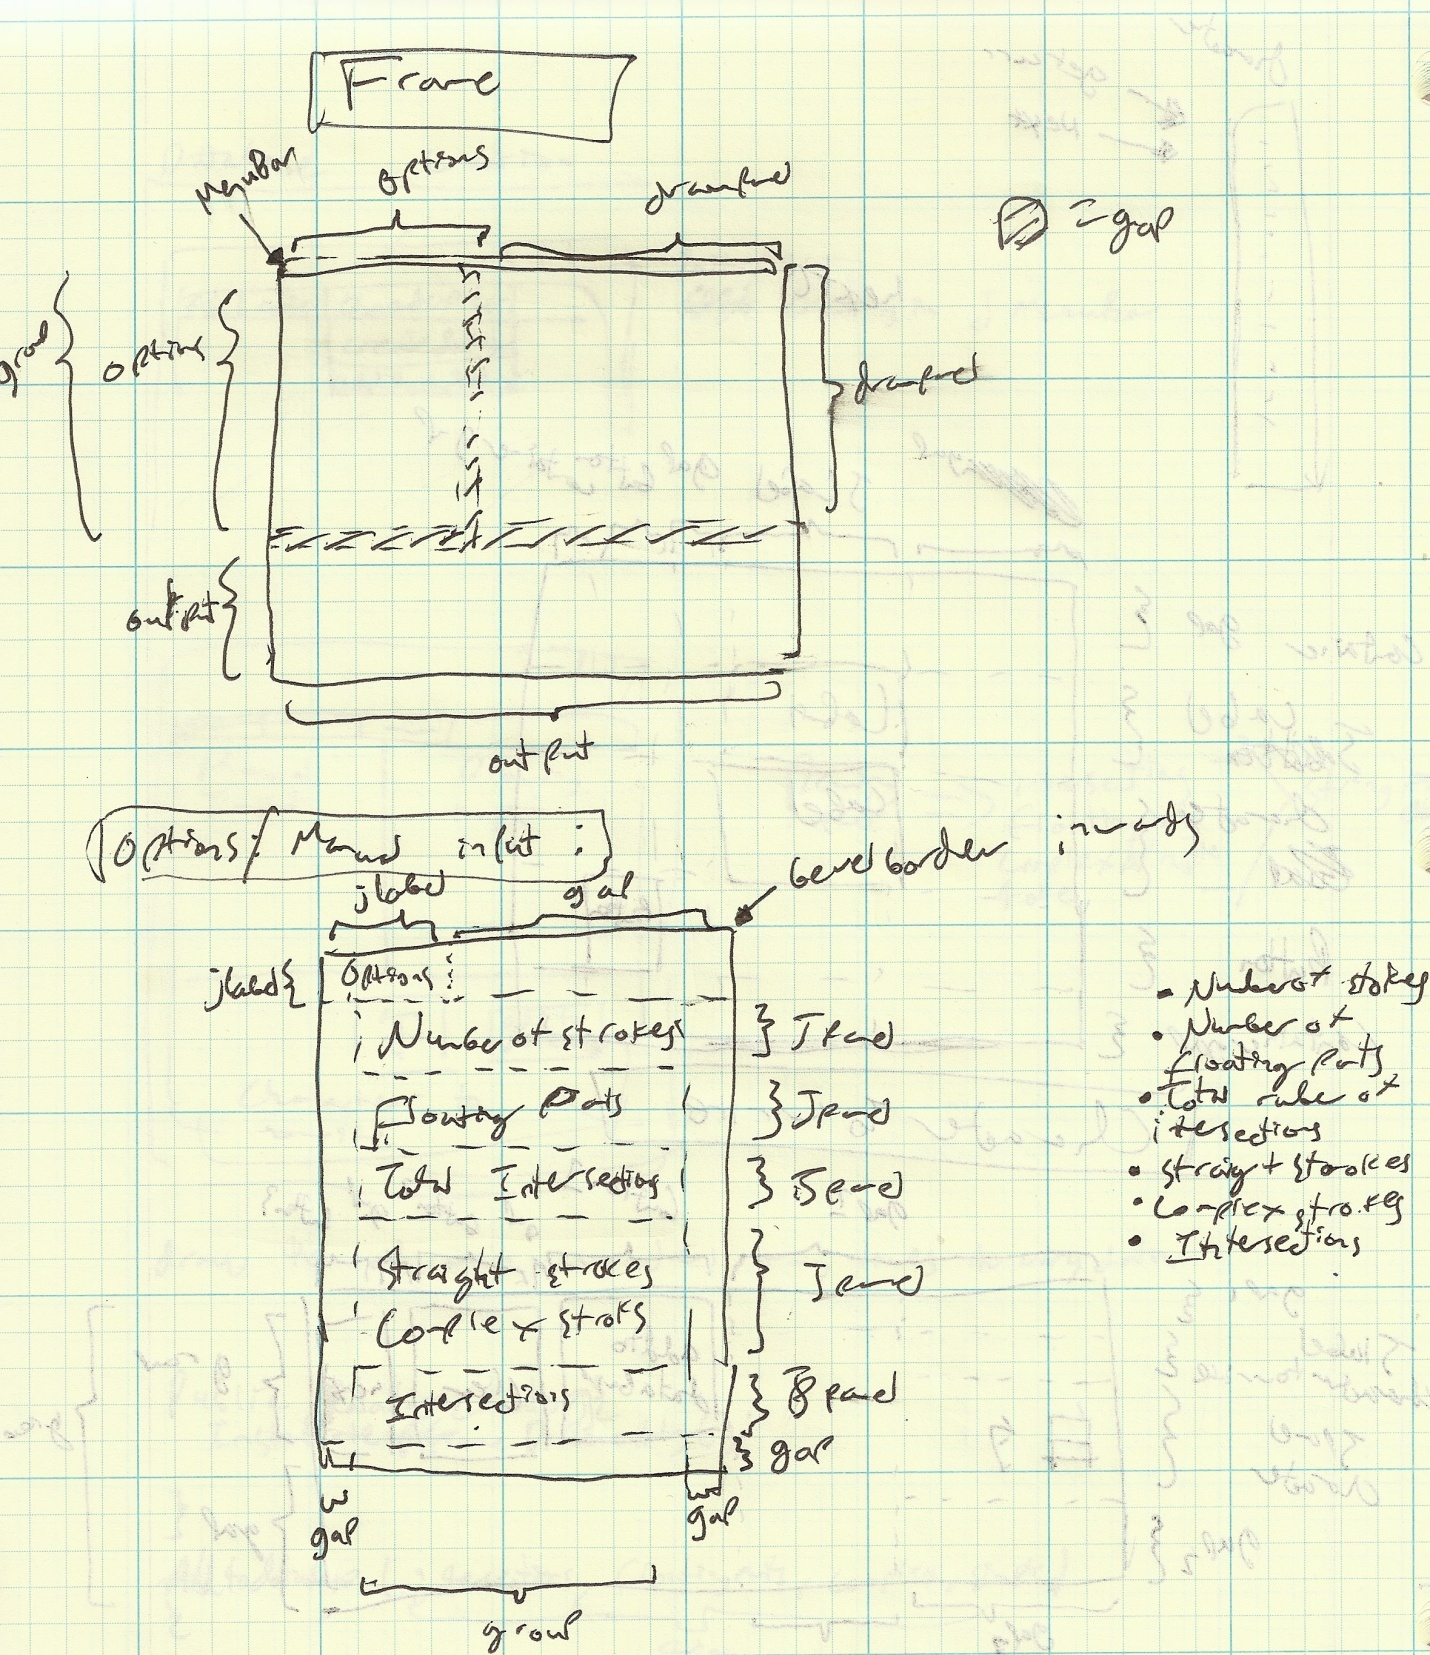 Frame
MenuBar
options
drawpanel
= gap
group
options
drawpanel
output
output
Options: Manual input :
jlabel
gap
bevelborder inwards
jlabel
Options :
Number of strokes
Jpanel
Floating Parts
Jpanel
Total Intersections
Jpanel
Straight strokes
Complex stroks
Jpanel
Intersections
Jpanel
gap
gap
gap
group
• Number of stokes
• Number of
floating parts
• Total number of
itersections
• straight strokes
• Complex strokes
• Intersections